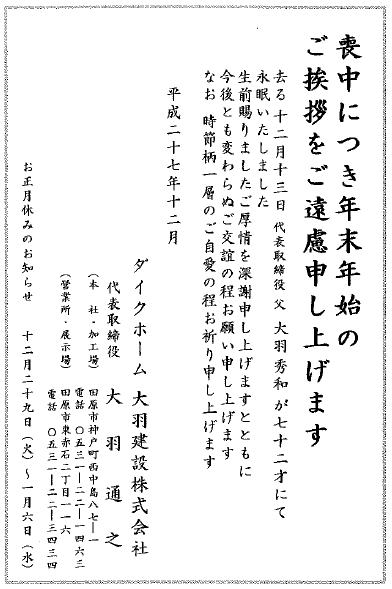 喪中につき年末年始の
ご挨拶をご遠慮申し上げます
去る 十二月十三日 代表取締役 父 大羽秀和 が七十二才にて
永眠いたしました
生前賜りましたご厚情を深謝申し上げますとともに
今後とも変わらぬご交誼の程お願い申し上げます
なお 時節柄一層のご自愛の程お祈り申し上げます
平成二十七年十二月
ダイクホーム 大羽建設株式会社
代表取締役 大羽通之
(本 社・加工場) 田原市神戸町西中島八七―一
電話 〇五三一―二二―一四六三
(営業所・展示場) 田原市東赤石二丁目一一六
電話 〇五三一―二二―三四三四
お正月休みのお知らせ 十二月二十九日(火)~一月六日(水)